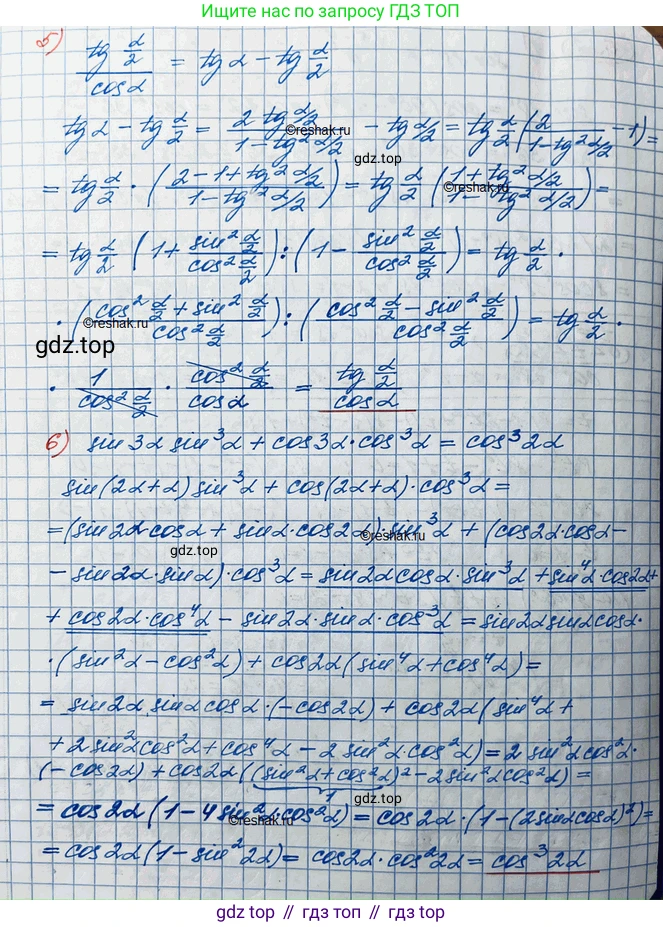 Больше решений по запросу ГДЗ ТОП
5) tg α/2 / cos α = tg α − tg α/2
tg α − tg α/2 = 2 tg α/2 / (1 − tg² α/2) − tg α/2 = tg α/2 (2 / (1 − tg² α/2) − 1) =
©reshak.ru
gdz.top
= tg α/2 · ((2 − 1 + tg² α/2) / (1 − tg² α/2)) = tg α/2 ((1 + tg² α/2) / (1 − tg² α/2)) =
©reshak.ru
= tg α/2 (1 + sin² α/2 / cos² α/2) : (1 − sin² α/2 / cos² α/2) = tg α/2 ·
· ((cos² α/2 + sin² α/2) / cos² α/2) : ((cos² α/2 − sin² α/2) / cos² α/2) = tg α/2 ·
©reshak.ru
gdz.top
· 1 / cos² α/2 · cos² α/2 / cos α = tg α/2 / cos α
6) sin 3α sin³ α + cos 3α · cos³ α = cos³ 2α
sin(2α + α) sin³ α + cos(2α + α) · cos³ α =
= (sin 2α · cos α + sin α · cos 2α) · sin³ α + (cos 2α · cos α −
©reshak.ru
gdz.top
− sin 2α · sin α) · cos³ α = sin 2α cos α · sin³ α + sin⁴ α · cos 2α +
+ cos 2α · cos⁴ α − sin 2α · sin α · cos³ α = sin 2α sin α cos α ·
· (sin² α − cos² α) + cos 2α (sin⁴ α + cos⁴ α) =
= sin 2α sin α cos α · (−cos 2α) + cos 2α (sin⁴ α +
+ 2 sin² α cos² α + cos⁴ α − 2 sin² α · cos² α) = 2 sin² α cos² α ·
(−cos 2α) + cos 2α ((sin² α + cos² α)² − 2 sin² α cos² α) =
1
gdz.top
= cos 2α (1 − 4 sin² α · cos² α) = cos 2α · (1 − (2 sin α cos α)²) =
©reshak.ru
= cos 2α (1 − sin² 2α) = cos 2α · cos² 2α = cos³ 2α
gdz.top // гдз топ // gdz top